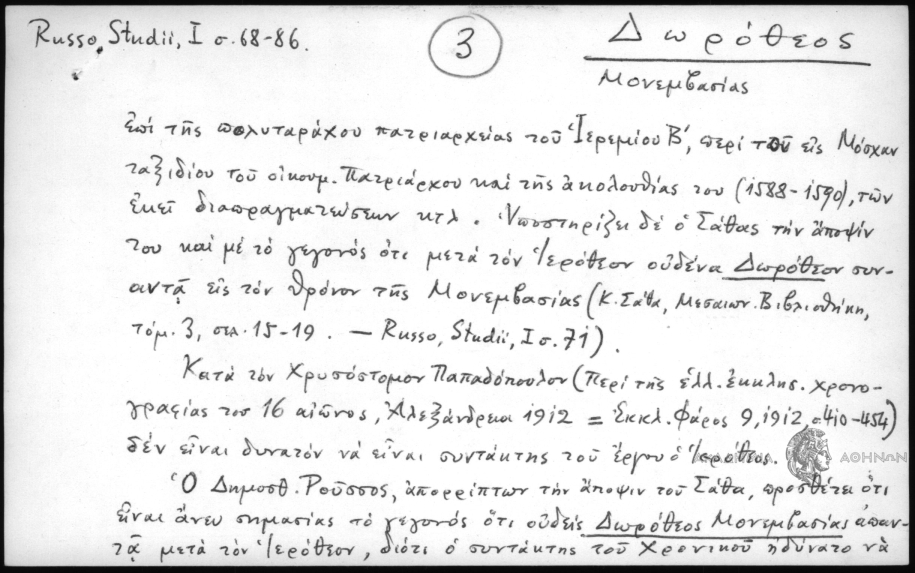 Russo, Studii, I σ. 68-86.
3
Δωρόθεος
Μονεμβασίας
ἐπί τῆς πολυταράχου πατριαρχείας τοῦ Ἱερεμίου Β΄, περί τοῦ εἰς Μόσχαν
ταξιδίου τοῦ οἰκουμ. Πατριάρχου καί τῆς ἀκολουθίας του (1588-1590), τῶν
ἐκεῖ διαπραγματεύσεων κτλ. Ὑποστηρίζει δέ ὁ Σάθας τήν ἄποψίν
του καί μέ τό γεγονός ὅτι μετά τόν Ἱερόθεον οὐδένα Δωρόθεον συν-
αντᾷ εἰς τόν θρόνον τῆς Μονεμβασίας (Κ. Σάθα, Μεσαιων. Βιβλιοθήκη,
τόμ. 3, σελ. 15-19. — Russo, Studii, I σ. 71).
Κατά τόν Χρυσόστομον Παπαδόπουλον (Περί τῆς ἑλλ. ἐκκλησ. χρονο-
γραφίας τοῦ 16 αἰῶνος, Ἀλεξάνδρεια 1912 = Ἐκκλ. Φάρος 9, 1912, σ. 410-454)
δέν εἶναι δυνατόν νά εἶναι συντάκτης τοῦ ἔργου ὁ Ἱερόθεος.
ΑΘΗΝΩΝ
Ὁ Δημοσθ. Ροῦσσος, ἀπορρίπτων τήν ἄποψιν τοῦ Σάθα, προσθέτει ὅτι
εἶναι ἄνευ σημασίας τό γεγονός ὅτι οὐδείς Δωρόθεος Μονεμβασίας ἀπαν-
τᾷ μετά τόν Ἱερόθεον, διότι ὁ συντάκτης τοῦ Χρονικοῦ ἠδύνατο νά